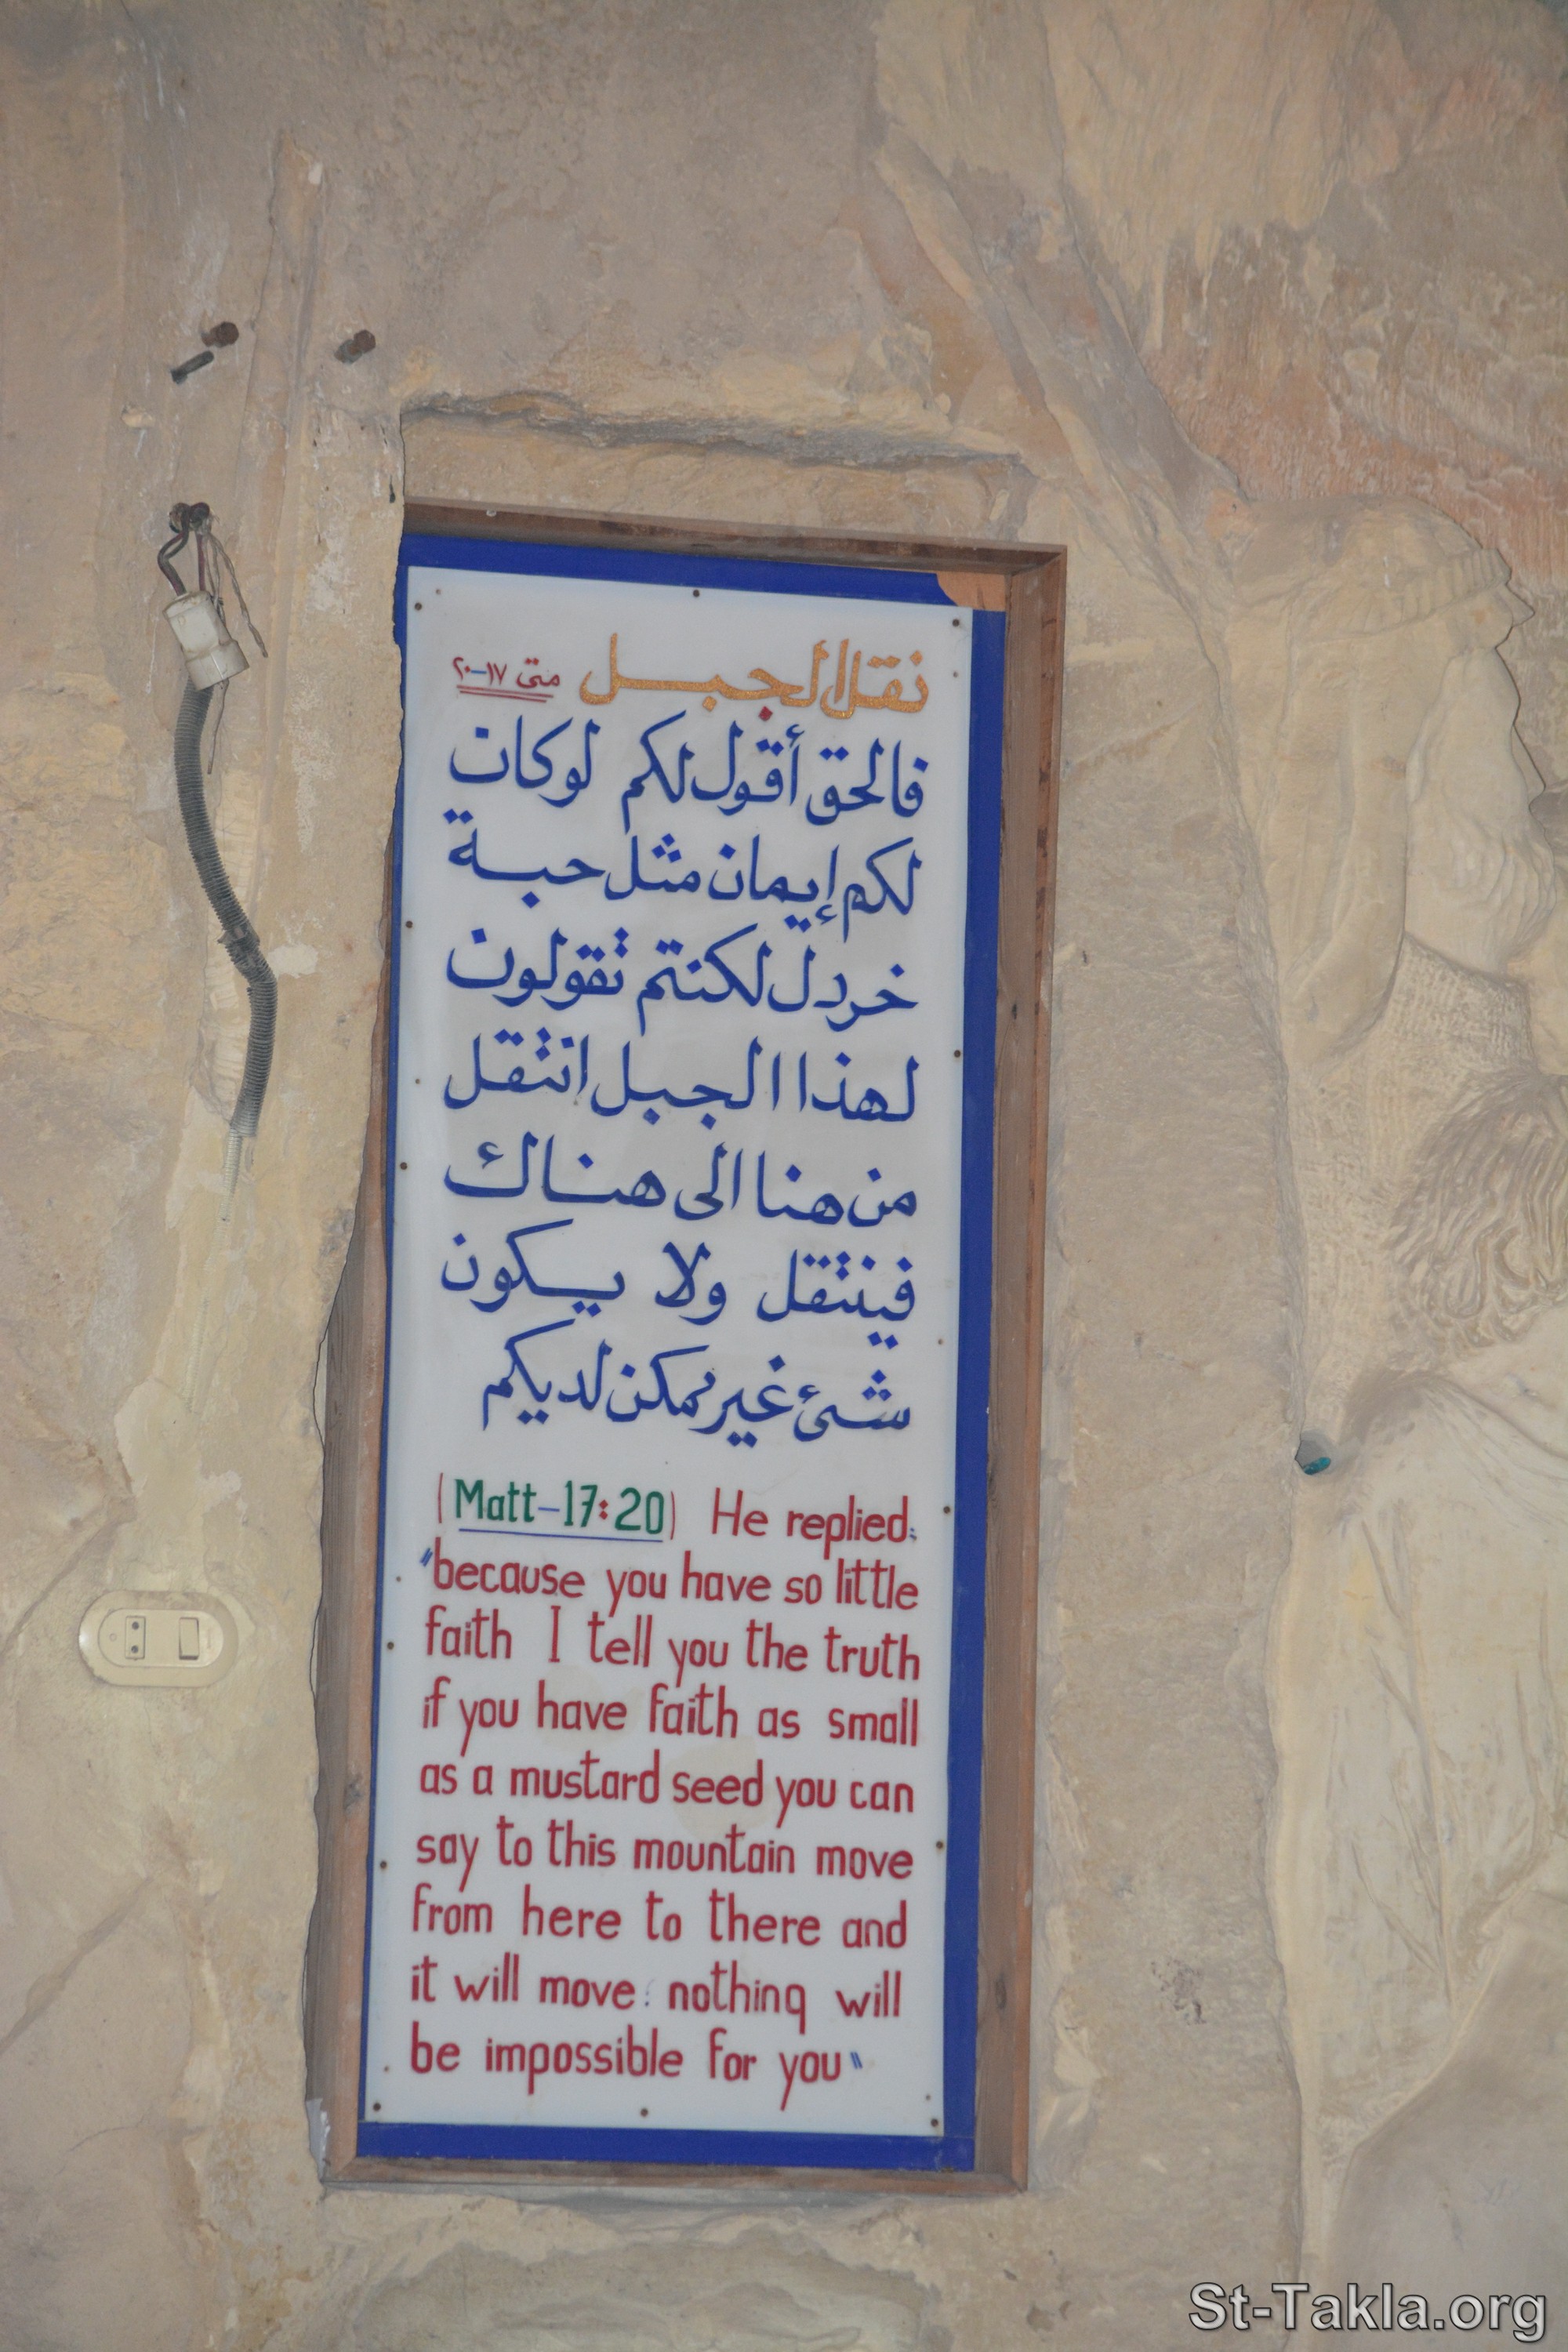 نقل الجبل متى ١٧-٢٠
فالحق أقول لكم لو كان
لكم إيمان مثل حبة
خردل لكنتم تقولون
لهذا الجبل انتقل
من هنا الى هناك
فينتقل ولا يكون
شئ غير ممكن لديكم
(Matt-17:20) He replied:
"because you have so little
faith I tell you the truth
if you have faith as small
as a mustard seed you can
say to this mountain move
from here to there and
it will move: nothing will
be impossible for you"
St-Takla.org